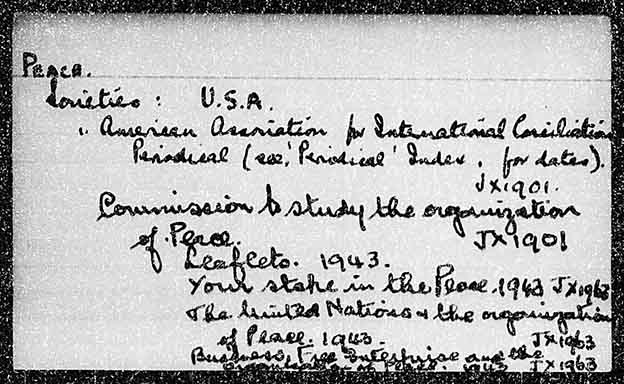 Peace.
Societies: U.S.A.
American Association for International Conciliation
Periodical (see 'Periodical' Index, for dates).
JX1901.
Commission to study the organization
of Peace. JX1901
Leaflets. 1943.
Your stake in the Peace. 1943 JX1963
The United Nations & the organization
of Peace. 1943. JX1963
Business, Free Enterprise and the
organization of Peace. 1943 JX1963